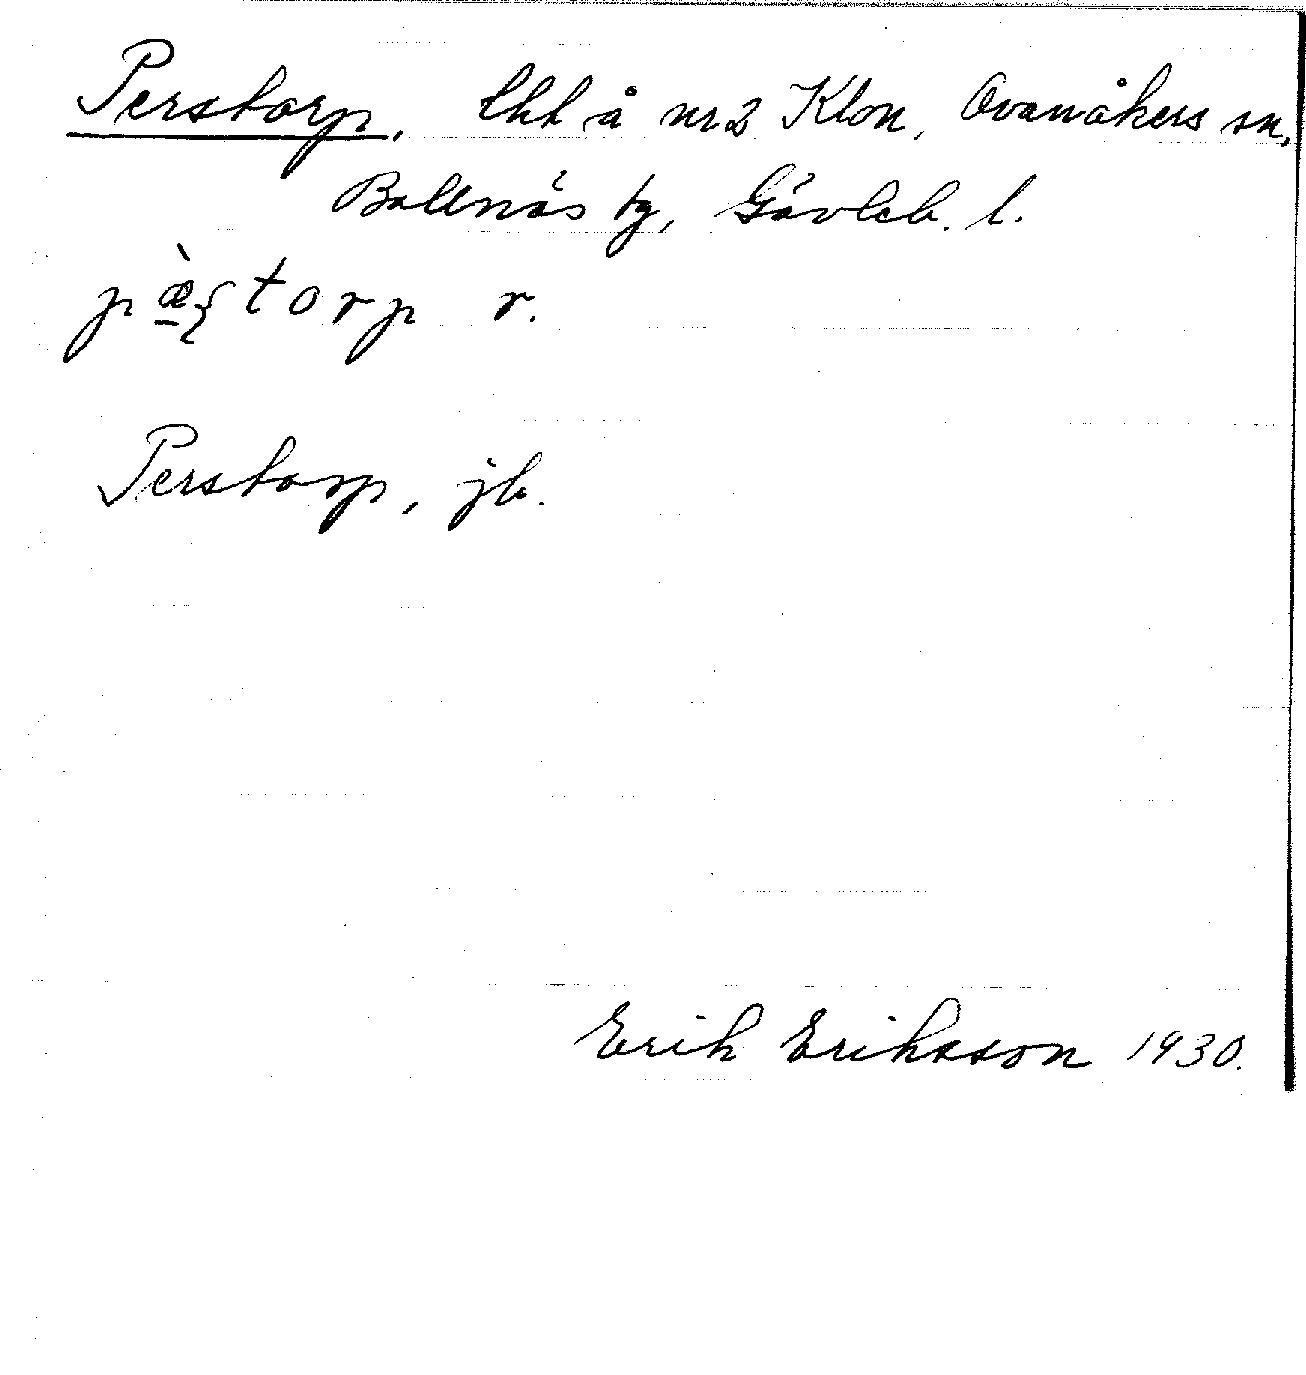 Perstorp, lht å nr 2 Klon, Ovanåkers sn,
Bollnäs tg, Gävleb. l.
pæ̀ʂtorp r.
Perstorp, jb.
Erik Eriksson 1930.